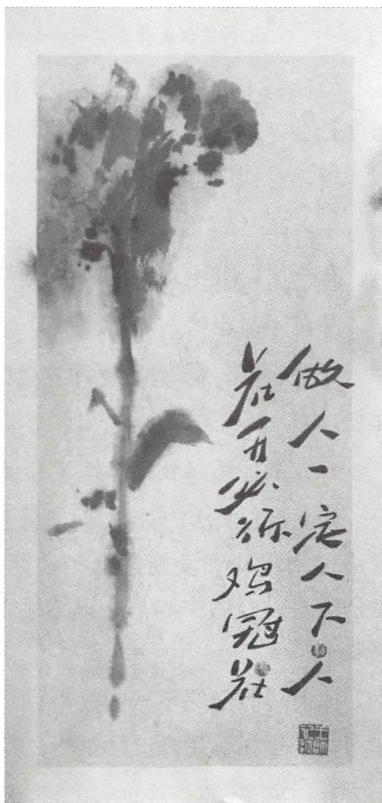 做人一定人下人
花开必称鸡冠花